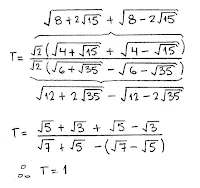 √(8+2√15) + √(8-2√15)
T = √2 (√(4+√15) + √(4-√15))
√2 (√(6+√35) - √(6-√35))
√(12+2√35) - √(12-2√35)
T = (√5 + √3 + √5 - √3) / (√7 + √5 - (√7 - √5))
∴ T = 1